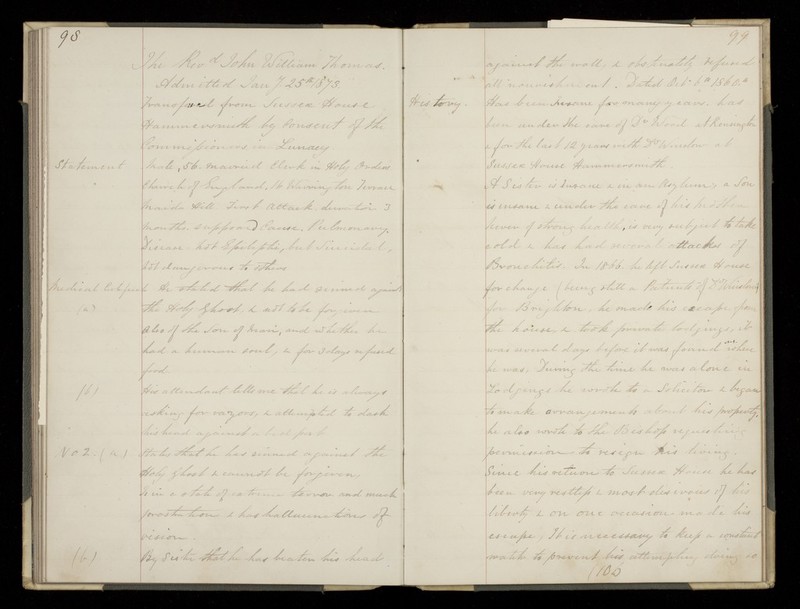 98
The Rev.d John William Thomas.
Admitted Jan.y 25th 1873
Transferred from Sussex House
Hammersmith by Consent of the
Commissioners in Lunacy.
Statement Male, 56. married Clerk in Holy Orders
Church of England, 16 Warrington Terrace
Maida Hill First Attack duration 3
months supposed Cause, Pulmonary
Disease. Not Epileptic, but Suicidal,
not dangerous to others
Medical Certificate He stated that he had sinned against
(a) the Holy Ghost, & not to be forgiven
also of the Son of Man, and whether he
had a human soul, & for 3 days refused
food
(b) His attendant tells me that he is always
asking for razors, & attempted to dash
his head against a
No 2. (a) States that he has sinned against the
Holy Ghost & cannot be forgiven,
is in a state of extreme terror and much
prostration & has hallucinations of
vision.
(b) By Sister that he has beaten his head
99
against the wall, & obstinately refused
all nourishment. Dated Oct. 6th 1860
History. Has been Insane for many years. has
been under the care of Dr Wood at Kensington
& for the last 12 years with Dr Winslow at
Sussex House Hammersmith.
A Sister is Insane & in an Asylum, & a Son
is insane & under the care of his Mother
Never of strong health, is very subject to take
cold & has had several attacks of
Bronchitis. In 1866. he left Sussex House
for change (being still a Patient of Dr Winslow)
for Brighton, he made his escape from
the house, & took private lodgings, it
was several days before it was found out where
he was. During the time he was alone in
Lodgings he wrote to a Solicitor & began
to make arrangements about his property,
he also wrote to the Bishop requesting
permission to resign his living.
Since his return to Sussex House he has
been very restless & most desirous of his
liberty & on one occasion made his
escape, It is necessary to keep a constant
watch to prevent his attempting doing so
(100